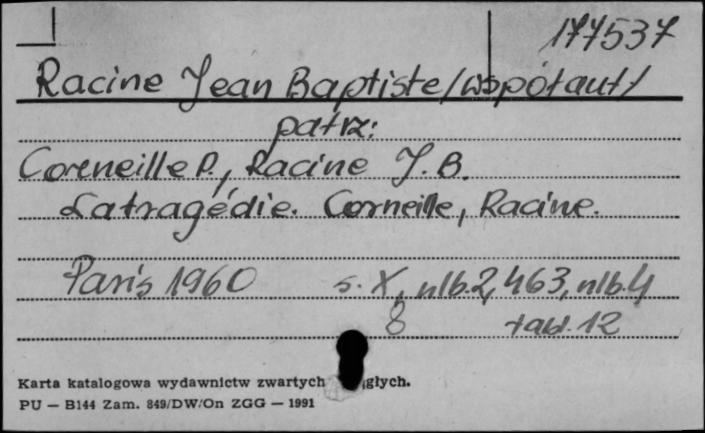 177537
Racine Jean Baptiste /współaut/
patrz:
Corneille P., Racine J. B.
La tragédie. Corneille, Racine.
Paris 1960 s. X, nlb. 2, 463, nlb. 4
8 tabl. 12
Karta katalogowa wydawnictw zwartych głych.
PU — B144 Zam. 849/DW/On ZGG — 1991